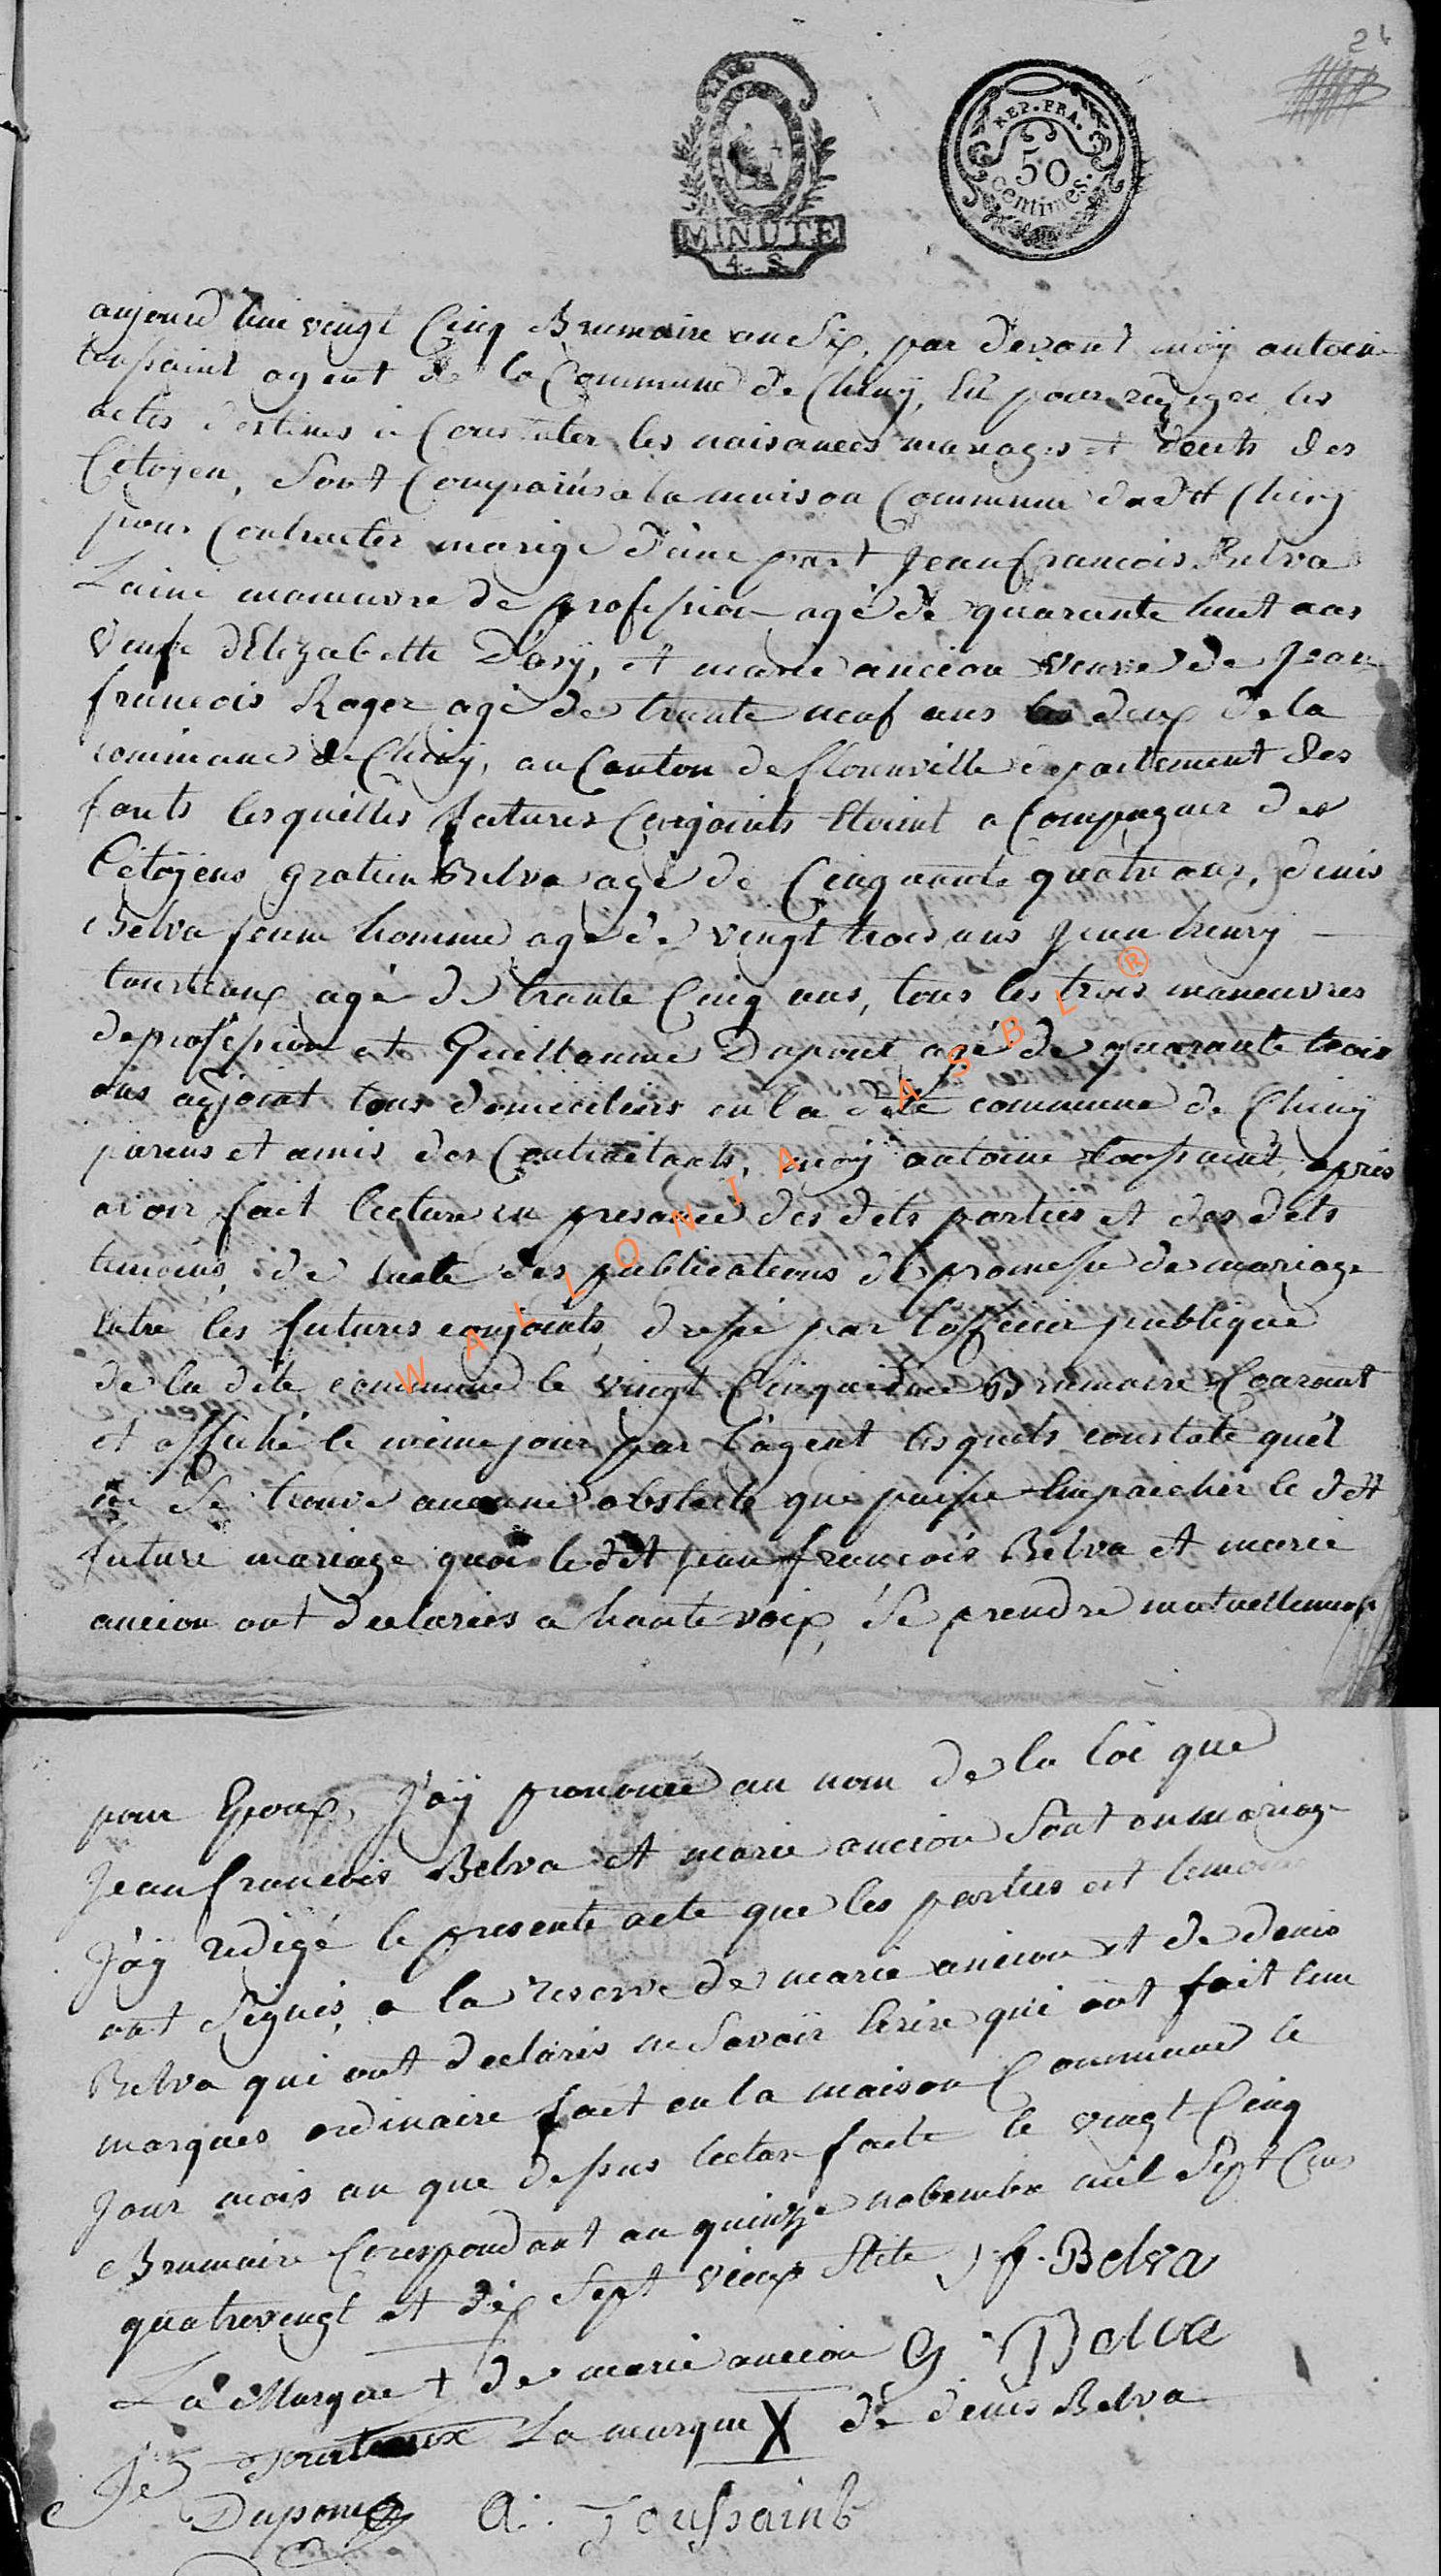 26
REP. FRA.
50
centimes.
MINUTE
4. S.
aujourd huie vengt Cinq Brumaire an Six, par devant moÿ antoine
toussaint agent de la Commune de Chiny, Elü pour redigre les
actes destines a Constater les naisances mariages et deces des
Citoyen, Sont Comparüs a la maison Commune du dt Chiny
pour Contracter marige d'une part Jean francois Belva
Lainé manuvre de profession agé de quarante huit ans
Veufe dElizabette Dasÿ, et marie ancion veuve de Jean
francois Roger agé de trente neuf ans les deux de la
commune de Chiny, au Canton de florenville departement des
forets lesquelles futures Conjoints Etoint a Compagner des
Citoÿens gratien Belva agé de Cinquante quatre ans, denis
Belva jeune homme agé de vengt trois ans Jean henry
tourteaux agé de trente Cinq ans, tous les trois maneuvres
de profession et Guillaume Dupont agé de quarante trois
ans adjoint tous domicileiers en la dite commune de Chiny
parens et amis des Contractants, moÿ antoine toussaint, apres
avoir fait lecture en presance des dets parties et des dets
temoins, de lacte des publications de promesse de mariage
Entre les futures conjoints, dressé par l'officier publique
de la dite commune le vingt Cinquieme Brumaire Courant
et affiché le même jour par l'agent lesquels constate qu'el
ne Se trouve aucune obstacle que puisse Empaicher le dt
future mariage quoi le dt jean francois Belva et marie
ancion ont declarées a haute voix, Se prendre mutuellement
pour Epoux, J'aÿ prononcé au nom de la loi que
Jean francois Belva et marie ancion Sont en mariage
J'aÿ redigé le presente acte que les parties et temoins
ont Signés, a la reserve de marie ancion et de denis
Belva qui ont declarés ne Savoir Ecrire qui ont fait leur
marques ordinaire fait en la maison Commune le
Jour mois an que dessus lecture faite le vingt Cinq
Brumaire Corespondant au quinze nobembre mil Sept Cens
quatrevengt et dix Sept vieux Stile J f. Belva
La Marque + de marie ancion G. Belva
J h tourteaux La marque X de denis Belva
Dupont A. Toussaint
WALLONIA ASBL ®